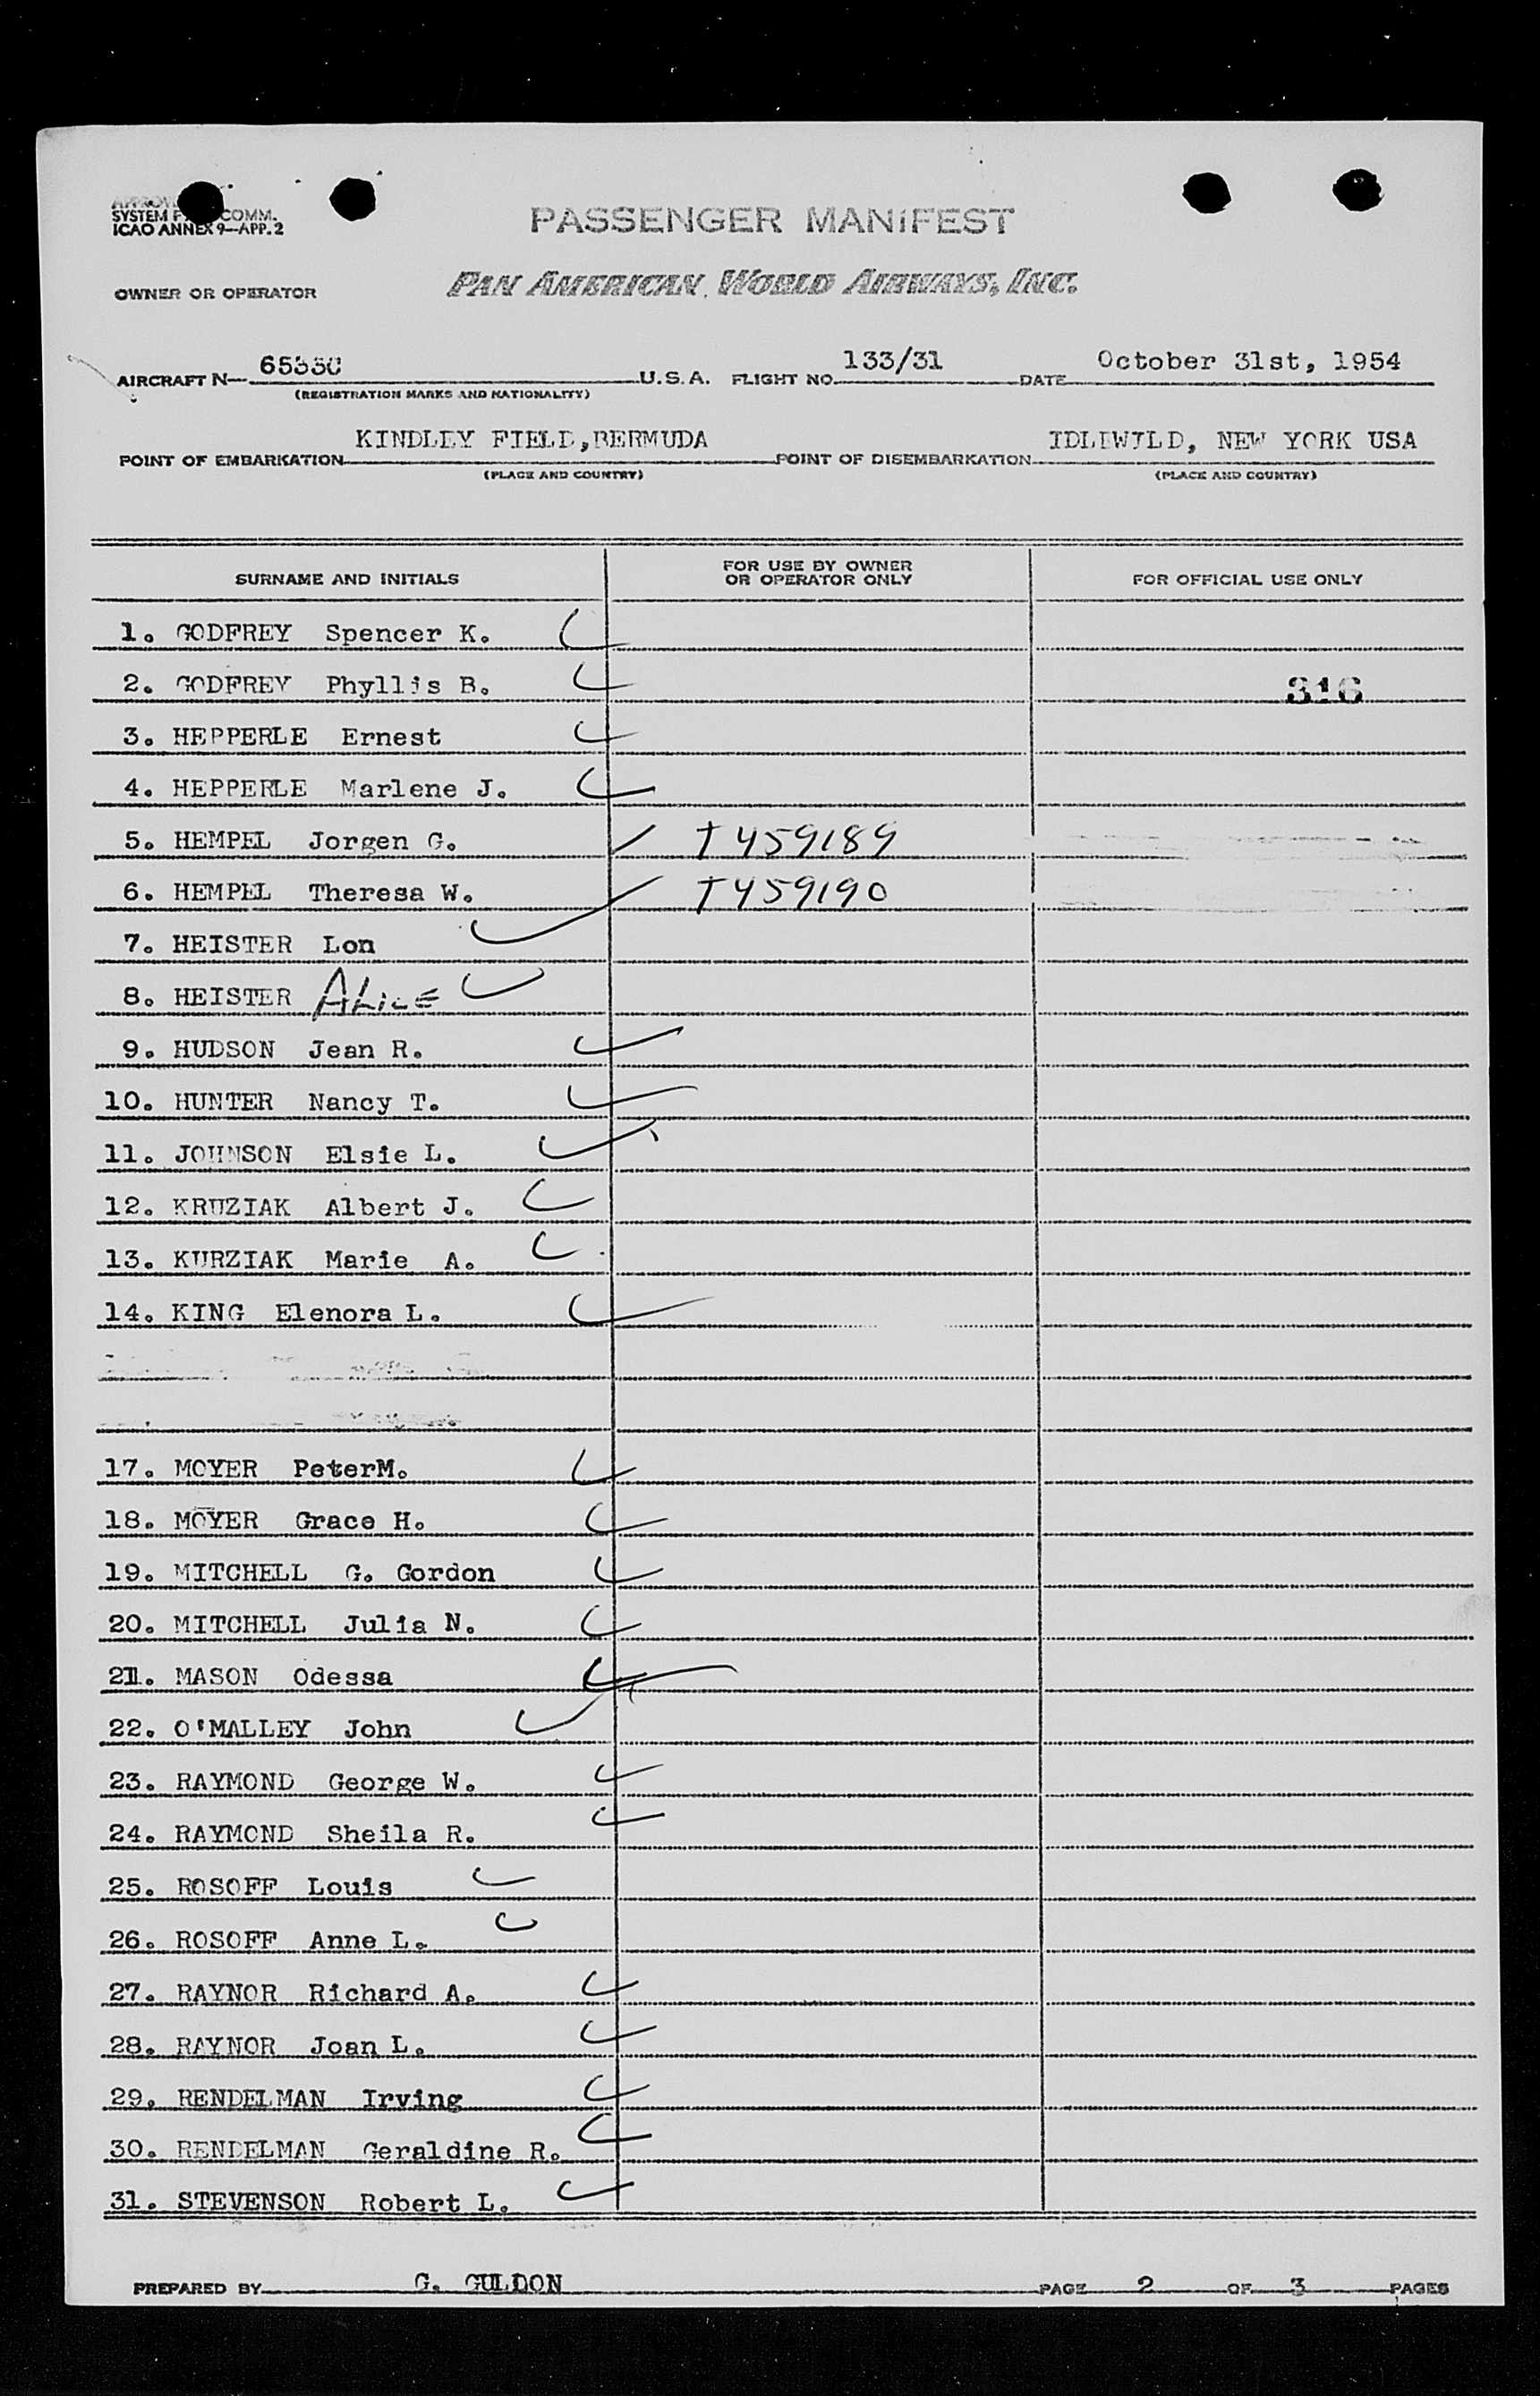 SYSTEM COMM.
ICAO ANNEX 9—APP. 2
PASSENGER MANIFEST
OWNER OR OPERATOR PAN AMERICAN WORLD AIRWAYS, INC.
AIRCRAFT N— U.S.A. FLIGHT NO. 133/31 DATE October 31st, 1954
(REGISTRATION MARKS AND NATIONALITY)
POINT OF EMBARKATION KINDLEY FIELD,BERMUDA POINT OF DISEMBARKATION IDLIWILD, NEW YORK USA
(PLACE AND COUNTRY) (PLACE AND COUNTRY)
SURNAME AND INITIALS FOR USE BY OWNER OR OPERATOR ONLY FOR OFFICIAL USE ONLY
1. GODFREY Spencer K.
2. GODFREY Phyllis B. 316
3. HEPPERLE Ernest
4. HEPPERLE Marlene J.
5. HEMPEL Jorgen G. T459189
6. HEMPEL Theresa W. T459190
7. HEISTER Lon
8. HEISTER ALiCE
9. HUDSON Jean R.
10. HUNTER Nancy T.
11. JOHNSON Elsie L.
12. KRUZIAK Albert J.
13. KURZIAK Marie A.
14. KING Elenora L.
17. MOYER PeterM.
18. MOYER Grace H.
19. MITCHELL G. Gordon
20. MITCHELL Julia N.
21. MASON Odessa
22. O'MALLEY John
23. RAYMOND George W.
24. RAYMOND Sheila R.
25. ROSOFF Louis
26. ROSOFF Anne L.
27. RAYNOR Richard A.
28. RAYNOR Joan L.
29. RENDELMAN Irving
30. RENDELMAN Geraldine R.
31. STEVENSON Robert L.
PREPARED BY G. GULDON PAGE 2 OF 3 PAGES